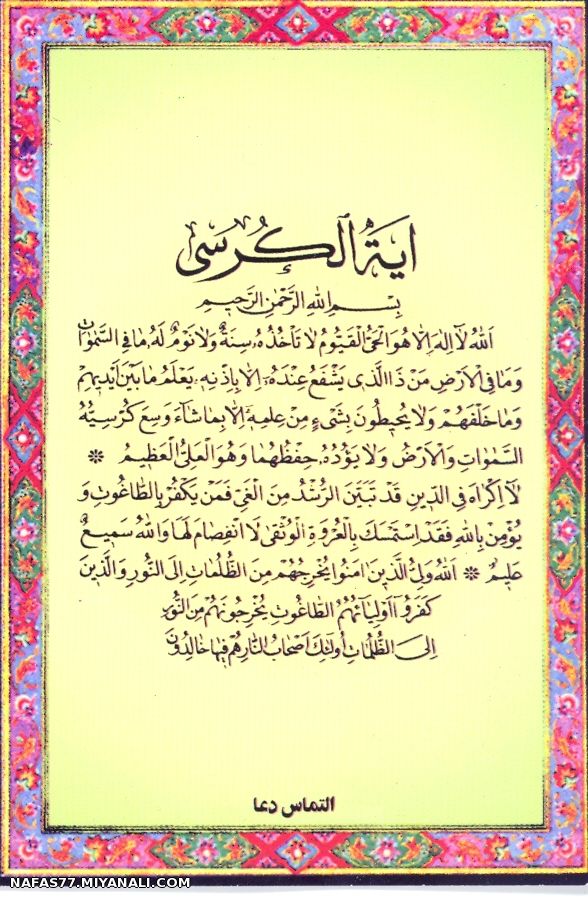 اٰیَةُ الْکُرسَی
بِسْمِ اللهِ الرَّحْمٰنِ الرَّحِیمِ
اَللهُ لاٰ اِلٰهَ اِلاّٰ هُوَ الْحَیُّ الْقَیُّومُ لاٰ تَأخُذُهُ سِنَةٌ وَلاٰ نَوْمٌ لَهُ مٰا فِی السَّمٰوٰاتِ
وَ مٰا فِی الْاَرْضِ مَنْ ذَا الَّذی یَشْفَعُ عِنْدَهُ اِلاّٰ بِاِذْنِهِ یَعْلَمُ مٰا بَیْنَ اَیْدیهِمْ
وَ مٰا خَلْفَهُمْ وَلاٰ یُحیطُونَ بِشَیْءٍ مِنْ عِلْمِهِ اِلاّٰ بِمٰا شٰاءَ وَسِعَ کُرْسِیُّهُ
السَّمٰوٰاتِ وَالْاَرْضَ وَلاٰ یَؤُدُهُ حِفْظُهُمٰا وَهُوَ الْعَلِیُّ الْعَظیمُ *
لاٰ اِکْرٰاهَ فِی الدّینِ قَدْ تَبَیَّنَ الرُّشْدُ مِنَ الْغَیِّ فَمَنْ یَکْفُرْ بِالطّٰاغُوتِ وَ
یُؤْمِنْ بِاللهِ فَقَدِ اسْتَمْسَکَ بِالْعُرْوَةِ الْوُثْقیٰ لَا انْفِصٰامَ لَهٰا وَاللهُ سَمیعٌ
عَلیمٌ * اَللهُ وَلِیُّ الَّذینَ اٰمَنُوا یُخْرِجُهُمْ مِنَ الظُّلُمٰاتِ اِلَی النُّورِ وَالَّذینَ
کَفَرُوا اَوْلِیٰائُهُمُ الطّٰاغُوتُ یُخْرِجُونَهُمْ مِنَ النُّورِ
اِلَی الظُّلُمٰاتِ اُولٰئِکَ اَصْحٰابُ النّٰارِ هُمْ فیهٰا خٰالِدُونَ
التماس دعا
NAFAS77.MIYANALI.COM